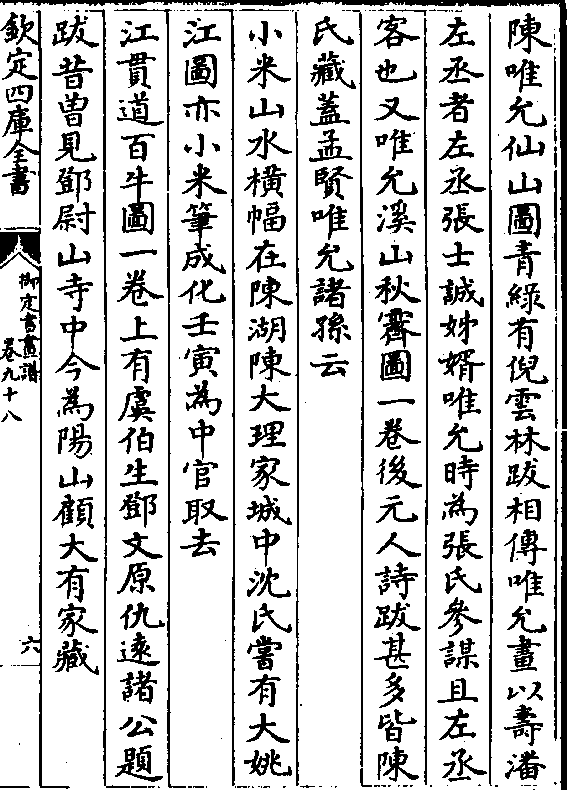 陳唯允仙山圖青綠有倪雲林跋相傳唯允畫以壽潘
左丞者左丞張士誠姊婿唯允時為張氏參謀且左丞
客也又唯允溪山秋霽圖一卷後元人詩跋甚多皆陳
氏藏蓋孟賢唯允諸孫云
小米山水橫幅在陳湖陳大理家城中沈氏嘗有大姚
江圖亦小米筆成化壬寅為中官取去
江貫道百牛圖一卷上有虞伯生鄧文原仇遠諸公題
跋昔曽見鄧尉山寺中今為陽山顧大有家藏
欽定四庫全書
御定書畫譜
卷九十八
六